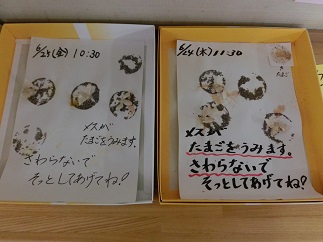 6/25(金) 10:30
メスが
たまごをうみます。
さわらないで
そっとしてあげてね!
6/24(木) 11:30
たまご
メスが
たまごをうみます。
さわらないで
そっとしてあげてね!